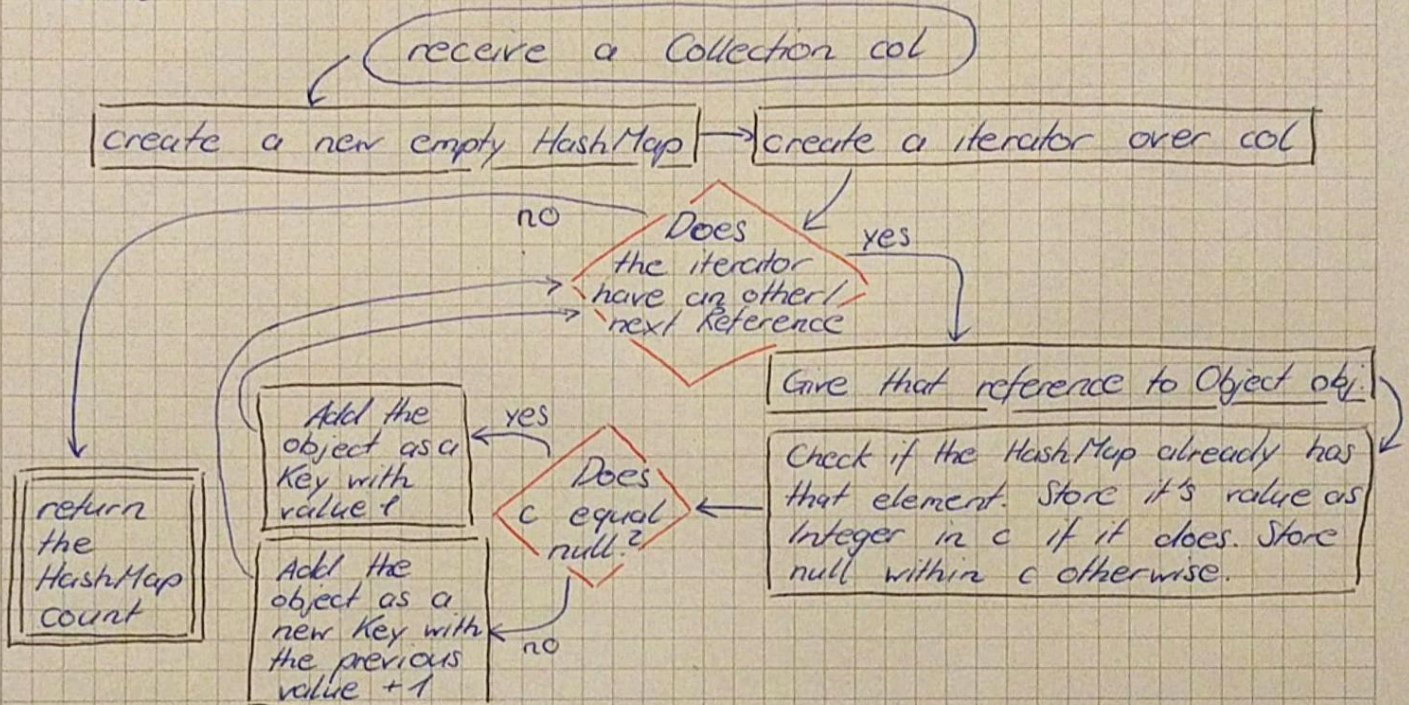 receive a Collection col
create a new empty HashMap
create a iterator over col
no
Does
the iterator
have an other/
next Reference
yes
Give that reference to Object obj.
Check if the HashMap already has
that element. Store it's value as
Integer in c if it does. Store
null within c otherwise.
Does
c equal
null?
yes
Add the
object as a
Key with
value 1
no
Add the
object as a
new Key with
the previous
value +1
return
the
HashMap
count